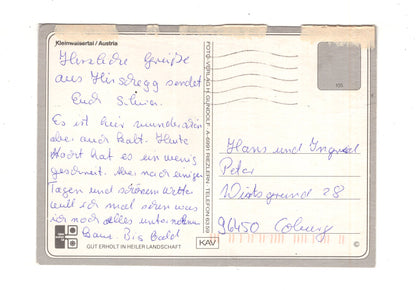 Kleinwalsertal / Austria
Herzliche Grüße
aus Hirschegg sendet
Euch
Es ist hier wunderschön
aber auch kalt. Heute
Nacht hat es ein wenig
geschneit. Aber nach einigen
Tagen und schönem Wetter
will ich mal sehen was
ich noch alles unternehme
Bis Bald
GUT ERHOLT IN HEILER LANDSCHAFT
FOTO-VERLAG H. GUNDOLF · A-6991 RIEZLERN · TELEFON
KAV
105
Hans und Ingrid
Peter
Wirtsgrund 28
96450 Coburg
©